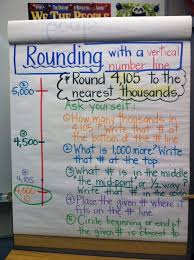 We The PEOPLE
Rounding with a vertical
number line
Round 4,105 to the
nearest thousands.
Ask yourself:
5,000
4,500
4,000
① How many thousands in
4,105? Write that # at
the bottom of the # line.
② What is 1,000 more? Write
that # at the top.
③ What # is in the middle
the mid-point or ½ way?
Write that # in the
④ Place the given # where it
fits on the # line
⑤ Circle beginning or end pt
the given # is closest to